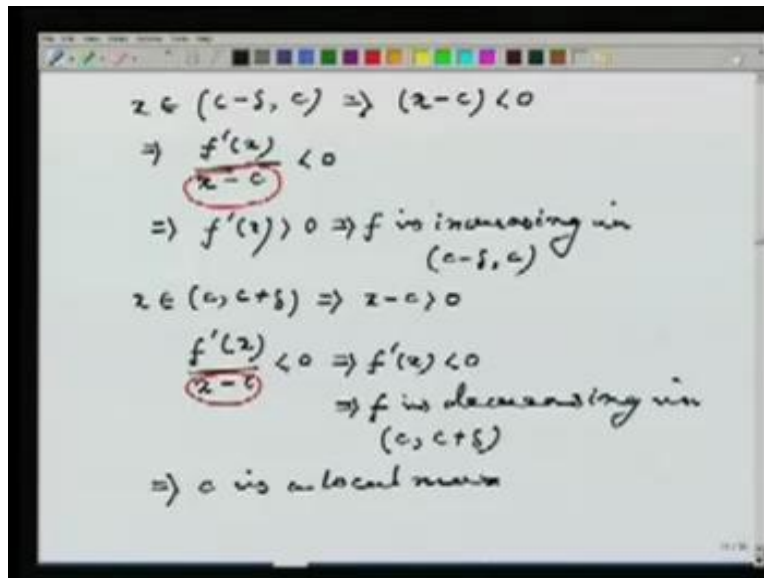 x ∈ (c-δ, c) ⇒ (x-c) < 0
⇒ f'(x)/(x-c) < 0
⇒ f'(x) > 0 ⇒ f is increasing in
(c-δ, c)
x ∈ (c, c+δ) ⇒ x-c > 0
f'(x)/(x-c) < 0 ⇒ f'(x) < 0
⇒ f is decreasing in
(c, c+δ)
⇒ c is a local max